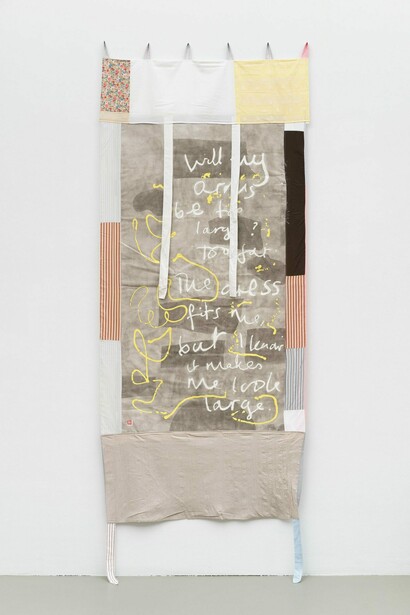 will my
arms
be too
large?
Too fat
The dress
fits me
but I know
it makes
me look
large.